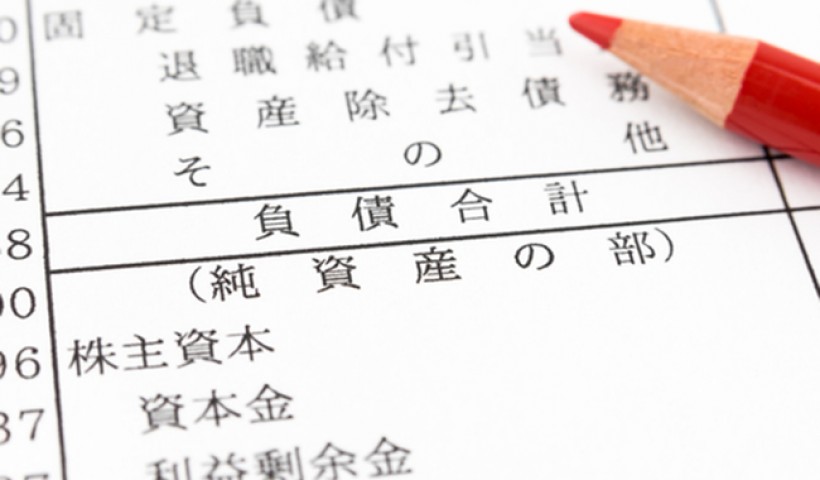 0 固定負債
9 退職給付引当
6 資産除去債務
4 その他
8 負債合計
00 (純資産の部)
96 株主資本
37 資本金
利益剰余金